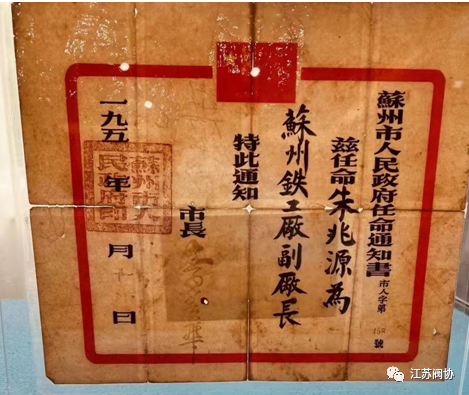 蘇州市人民政府任命通知書
市人字第158號
茲任命朱兆源為
蘇州鉄工廠副廠長
特此通知
市長
一九五 年 月 日
蘇州市人民政府
江苏阀协